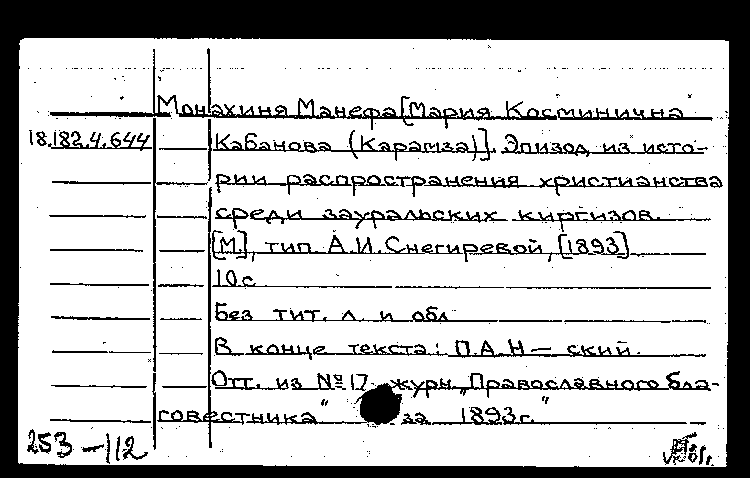 Монахиня Манефа [Мария Косминична
18.182.4.644 Кабанова (Карамза)]. Эпизод из исто-
рии распространения христианства
среди зауральских киргизов.
[М.], тип. А.И. Снегиревой, [1893]
10 с
Без тит. л. и обл
В конце текста: П.А.Н — ский.
Отт. из №17 журн. „Православного бла-
говестника" за 1893г."
253 – 112